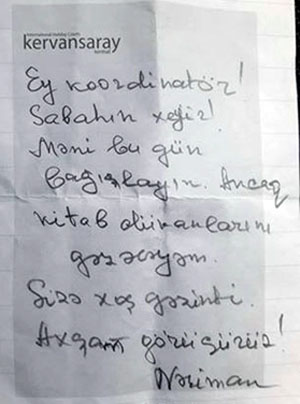 International Holiday Check
kervansaray
Ey koordinatör!
Sabahın xeyir!
Məni bu gün
bağışlayın. Ancaq
kitab dükanlarını
gəzəcəyəm.
Sizə xoş gəzinti.
Axşam görüşürüz!
Nəriman